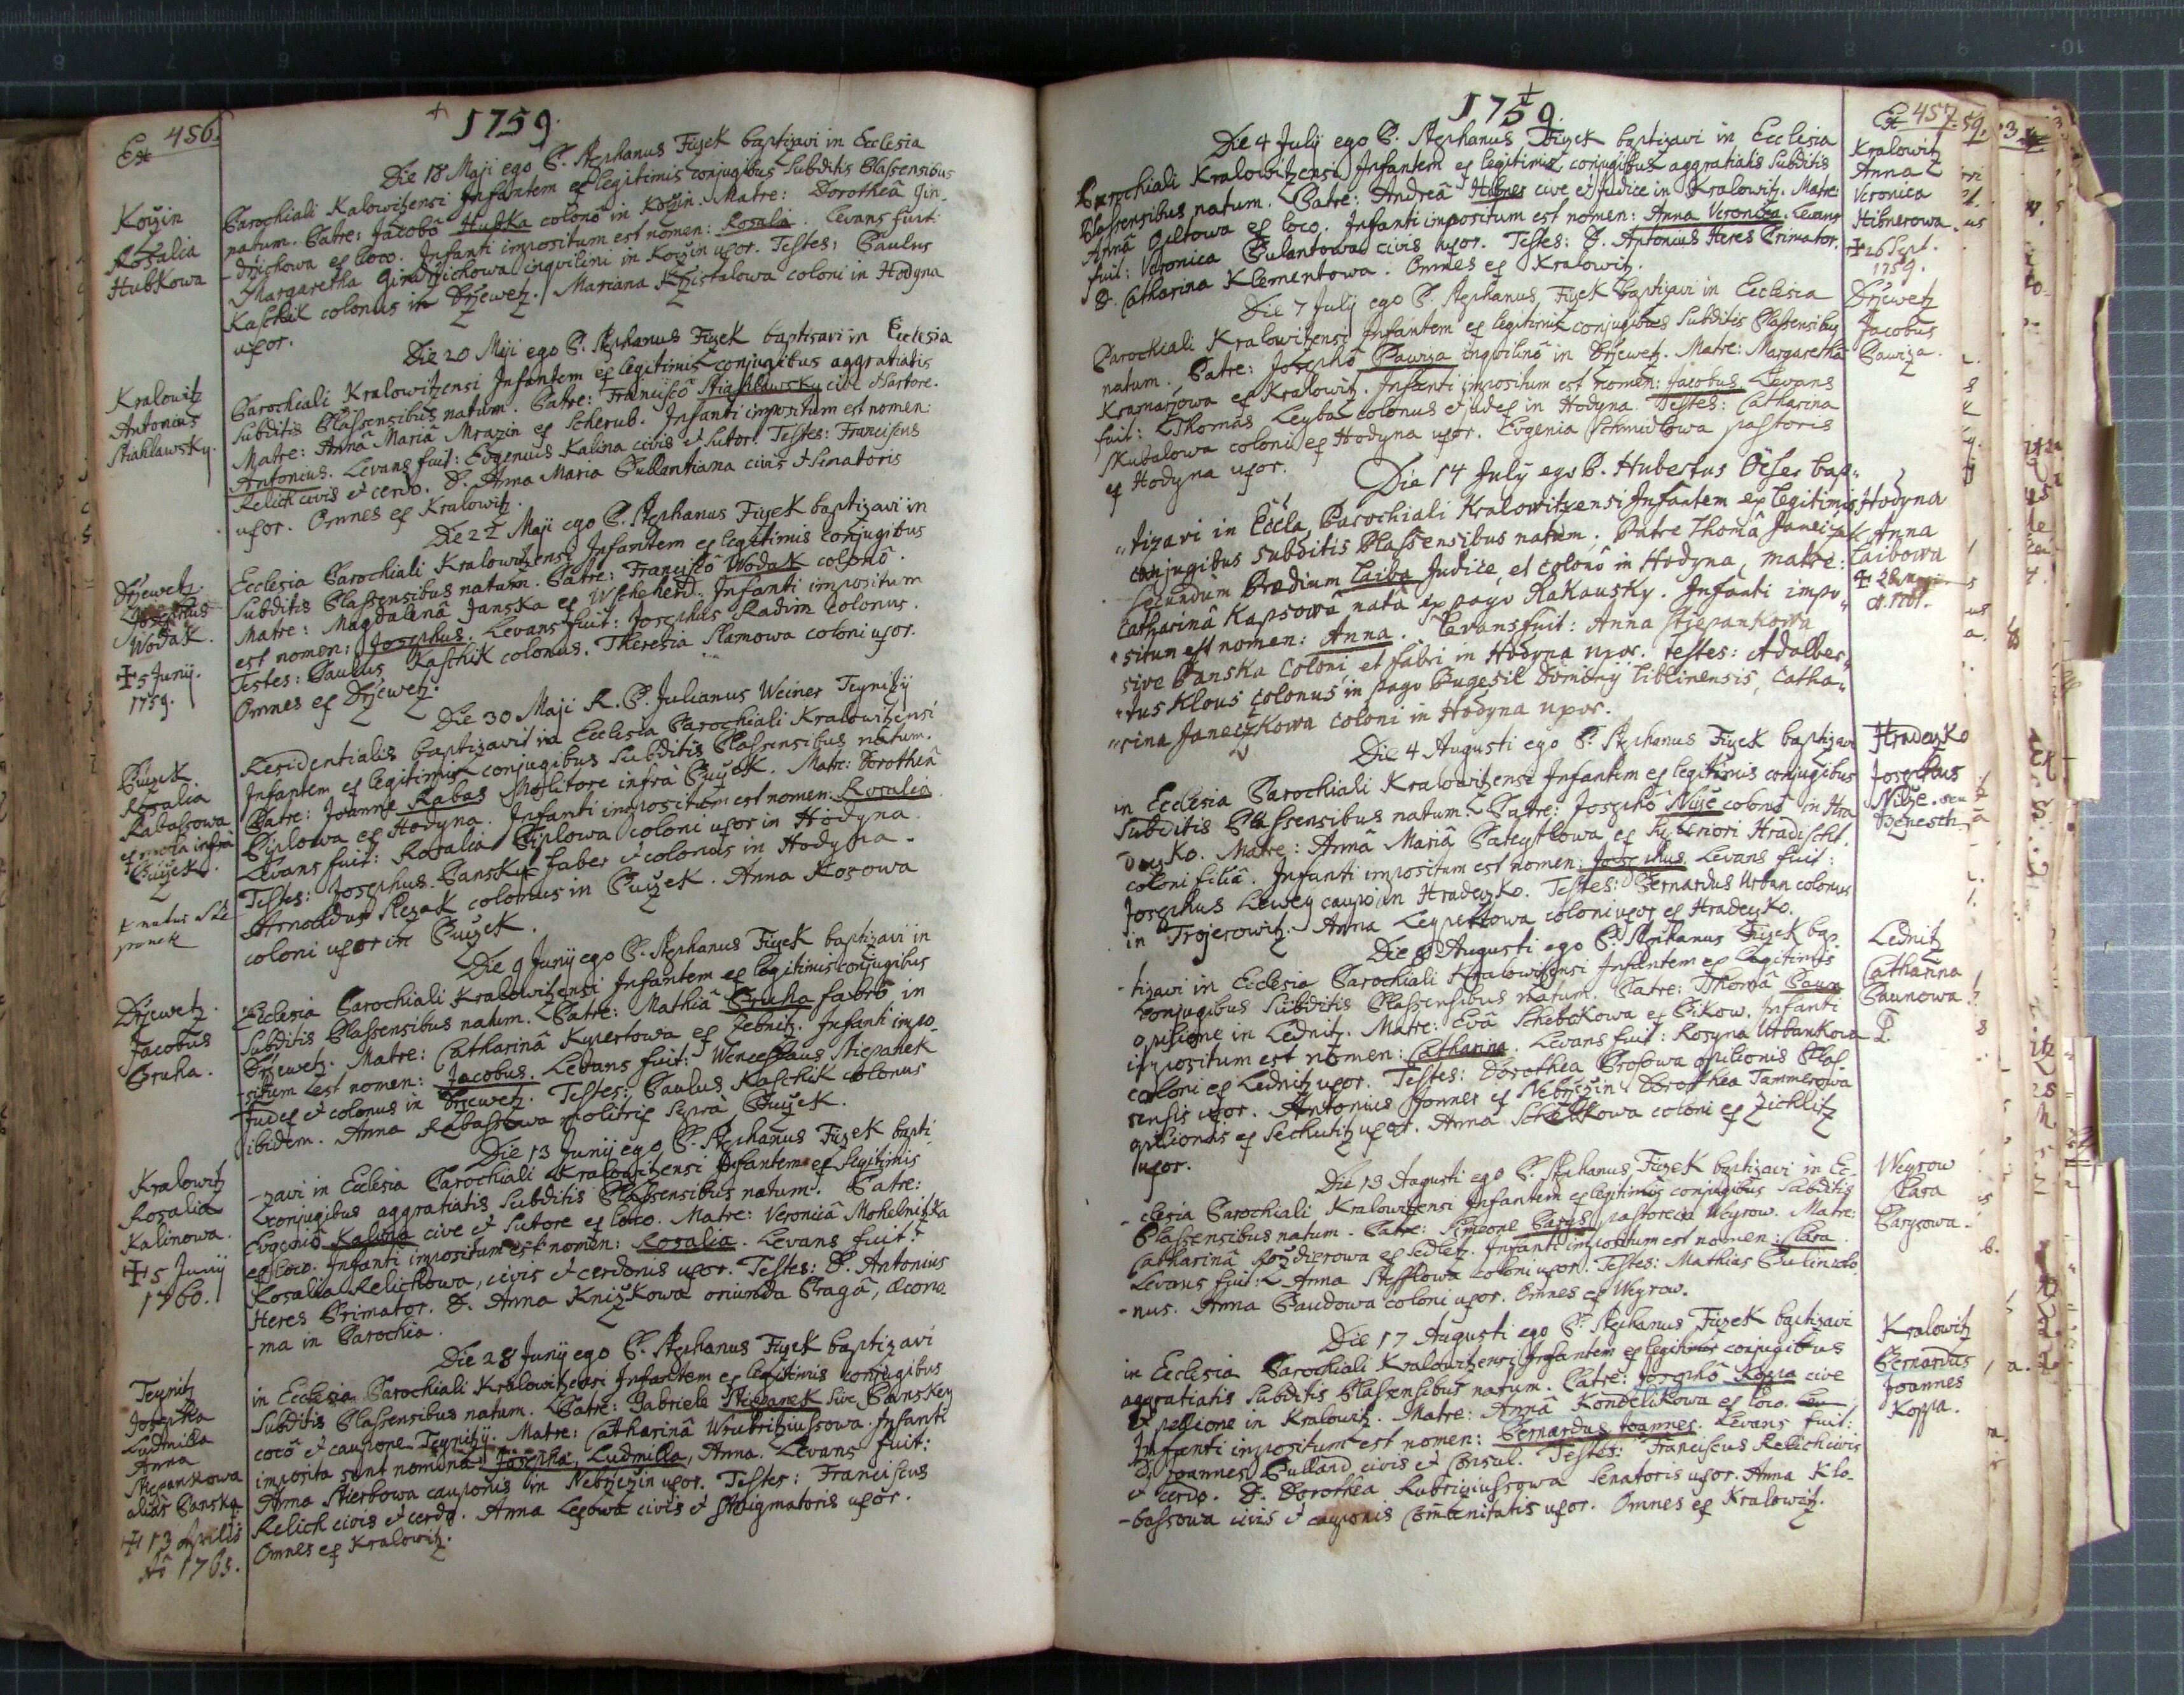 456.
1759.
Ex
Die 18 Maji ego P. Stephanus Fizek baptizavi in Ecclesia
Parochiali Kalowitzensi Infantem ex legitimis conjugibus Subditis Plassensibus
natum. Patre: Jacobô Hubka colonô in Kožin. Matre: Dorotheâ Gin-
-drzichowa ex loco. Infanti impositum est nomen: Rosala. Levans fuit:
Margaretha Gindrzichowa inquilini in Kožin uxor. Testes: Paulus
Kaschik colonus in Drzewetz. Mariana Krzistalowa coloni in Hodyna
uxor.
Kožin
Rosalia
Hubkowa
Die 20 Maji ego P. Stephanus Fizek baptisavi in Ecclesia
Parochiali Kralowitzensi Infantem ex legitimis conjugibus aggratiatis
Subditis Plassensibus natum. Patre: Franciscô Stiahlawsky cive Sartore.
Matre: Annâ Mariâ Mrazin ex Scherub. Infanti impositum est nomen:
Antonius. Levans fuit: Eugenius Kalina civis et Sutor. Testes: Franciscus
Relich civis et cerdo. D. Anna Maria Pullantiana civis et Senatoris
uxor. Omnes ex Kralowitz.
Kralowitz
Antonius
Stiahlawsky.
Die 22 Maji ego P. Stephanus Fizek baptizavi in
Ecclesia Parochiali Kralowitzensi Infantem ex legitimis conjugibus
Subditis Plassensibus natum. Patre: Franciscô Wodak colonô.
Matre: Magdalenâ Janska ex Wscheherd. Infanti impositum
est nomen: Josephus. Levans fuit: Josephus Radim colonus.
Testes: Paulus Kaschik colonus. Theresia Slamowa coloni uxor.
Omnes ex Drzewetz.
Drzewetz.
Josephus
Wodak.
+ 5 Junij.
1759.
Die 30 Maji R. P. Julianus Weiner Teynitzij
Residentialis baptizavit in Ecclesia Parochiali Kralowitzensi
Infantem ex legitimis conjugibus Subditis Plassensibus natum.
Patre: Joanne Rabas Molitore infrà Buček. Matre: Dorotheâ
Piplowa ex Hodyna. Infanti impositum est nomen: Rosalia.
Levans fuit: Rosalia Piplowa coloni uxor in Hodyna.
Testes: Josephus Pansky faber et colonus in Hodyna.
Arnoldus Slezak colonus in Buček. Anna Kosowa
coloni uxor in Buček.
Buček.
Rosalia
Rabassowa
ex mola infrà
Buček.
Die 9 Junij ego P. Stephanus Fizek baptizavi in
Ecclesia Parochiali Kralowitzensi Infantem ex legitimis conjugibus
Subditis Plassensibus natum. Patre: Mathiâ Pruha fabrô in
Drzewetz. Matre: Catharinâ Kupertowa ex Zebnitz. Infanti impo-
-situm est nomen: Jacobus. Levans fuit: Wenceslaus Stiepanek
Judex et colonus in Drzewetz. Testes: Paulus Kaschik colonus
ibidem. Anna Rabassowa molitris suprà Buček.
Drzewetz.
Jacobus
Pruha.
Die 13 Junij ego P. Stephanus Fizek bapti-
-zavi in Ecclesia Parochiali Kralowitzensi Infantem ex legitimis
conjugibus aggratiatis Subditis Plassensibus natum. Patre:
Eugeniô Kalina cive et Sutore ex loco. Matre: Veronicâ Mohelnitzka
ex loco. Infanti impositum est nomen: Rosalia. Levans fuit:
Rosalia Relichowa, civis et cerdonis uxor. Testes: D. Antonius
Heres Primator. D. Anna Knizkowa oriunda Pragâ, œcono-
-ma in Parochia.
Kralowitz
Rosalia
Kalinowa.
+ 5 Junij
1760.
Die 28 Junij ego P. Stephanus Fizek baptizavi
in Ecclesia Parochiali Kralowitzensi Infantem ex legitimis conjugibus
Subditis Plassensibus natum. Patre: Gabriele Stiepanek sive Panskey
cocô et caupone Teynitzij. Matre: Catharinâ Wrutitziussowa. Infanti
imposita sunt nomina: Josepha, Ludmilla, Anna. Levans fuit:
Anna Stierbowa cauponis in Nebrzezin uxor. Testes: Franciscus
Relich civis et cerdo. Anna Lexowa civis et Smigmatoris uxor.
Omnes ex Kralowitz.
Teynitz
Josepha
Ludmilla
Anna
Stiepankowa
alias Panska
+ 13 Aprilis
Aô 1765.
1759.
457.
Ex
Die 4 July ego P. Stephanus Fizek baptizavi in Ecclesia
Parochiali Kralowitzensi Infantem ex legitimis conjugibus aggratiatis Subditis
Plassensibus natum. Patre: Andreâ Hibner cive et Judice in Kralowitz. Matre:
Annâ Giltowa ex loco. Infanti impositum est nomen: Anna Veronica. Levans
fuit: Veronica Pulantowa civis uxor. Testes: D. Antonius Heres Primator.
D. Catharina Klementowa. Omnes ex Kralowitz.
Kralowitz
Anna
Veronica
Hibnerowa.
+ 26 Sept.
1759.
Die 7 July ego P. Stephanus Fizek baptizavi in Ecclesia
Parochiali Kralowitzensi Infantem ex legitimis conjugibus Subditis Plassensibus
natum. Patre: Josephô Pawiza inquilinô in Drzewetz. Matre: Margarethâ
Kramarzowa ex Kralowitz. Infanti impositum est nomen: Jacobus. Levans
fuit: Thomas Leyba colonus et judex in Hodyna. Testes: Catharina
Skubalowa coloni ex Hodyna uxor. Eugenia Schmidlowa pastoris
ex Hodyna uxor.
Drzewetz
Jacobus
Pawiza.
Die 14 July ego P. Hubertus Oeser bap-
-tizavi in Eccła Parochiali Kralowitzensi Infantem ex legitimis
conjugibus subditis Plassensibus natum. Patre Thomâ Janeizak
secundùm Prædium Laiba Judice, et colonô in Hodyna, matre:
Catharinâ Kapsowâ natâ ex pago Rakausky. Infanti impo-
-situm est nomen: Anna. Levans fuit: Anna Stiepankowa
sive Panska Coloni, et fabri in Hodyna uxor. testes: Adalber-
-tus Klous colonus in pago Bugesil Dominij Liblinensis, Catha-
-rina Janeczkowa coloni in Hodyna uxor.
Hodyna
Anna
Laibowa
Die 4 Augusti ego P. Stephanus Fizek baptizavi
in Ecclesia Parochiali Kralowitzensi Infantem ex legitimis conjugibus
Subditis Plassensibus natum. Patre: Josephô Nuže colonô in Hra-
deczko. Matre: Annâ Mariâ Pateytlowa ex Superiori Hradischt.
coloni filiâ. Infanti impositum est nomen: Josephus. Levans fuit:
Josephus Lewey caupo in Hradeczko. Testes: Bernardus Urban colonus
in Trojerowitz. Anna Leypertowa coloni uxor ex Hradeczko.
Hradeczko
Josephus
Nuže. seu
Benesch
Die 8 Augusti ego P. Stephanus Fizek bap-
-tizavi in Ecclesia Parochiali Kralowitzensi Infantem ex legitimis
conjugibus Subditis Plassensibus natum. Patre: Thomâ Paun
opilione in Lednitz. Matre: Evâ Schebekowa ex Bikow. Infanti
impositum est nomen: Catharina. Levans fuit: Rosyna Urbankowa
coloni ex Lednitz uxor. Testes: Dorothea Brosowa opilionis Plas-
sensis uxor. Antonius Jonner ex Nebrzezin. Dorothea Tammerowa
opilionis ex Sechutitz uxor. Anna Schelkowa coloni ex Zichlitz
uxor.
Lednitz
Catharina
Paunowa.
Die 13 Augusti ego P. Stephanus Fizek baptizavi in Ec-
-clesia Parochiali Kralowitzensi Infantem ex legitimis conjugibus Subditis
Plassensibus natum. Patre: Simeone Barys pastore in Weyrow. Matre:
Catharinâ Rozdierowa ex Sedletz. Infanti impositum est nomen: Clara.
Levans fuit: Anna Stefflowa coloni uxor. Testes: Mathias Bulin colo-
-nus. Anna Baudowa coloni uxor. Omnes ex Weyrow.
Weyrow
Clara
Barysowa.
Die 17 Augusti ego P. Stephanus Fizek baptizavi
in Ecclesia Parochiali Kralowitzensi Infantem ex legitimis conjugibus
aggratiatis Subditis Plassensibus natum. Patre: Josephô Koppa cive
et pellione in Kralowitz. Matre: Annâ Kondelikowa ex loco.
Infanti impositum est nomen: Bernardus Joannes. Levans fuit:
D. Joannes Pulland civis et Consul. Testes: Franciscus Relich civis
et cerdo. D. Dorothea Rubriziussowa Senatoris uxor. Anna Klo-
-bassowa civis et cauponis Communitatis uxor. Omnes ex Kralowitz.
Kralowitz
Bernardus
Joannes
Koppa.